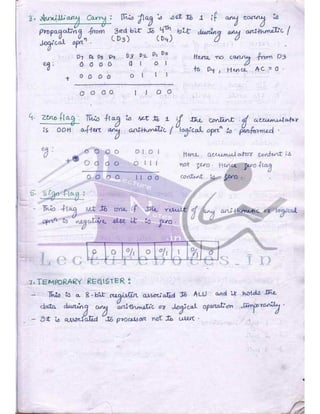 3. Auxilliary Carry : This flag is set to 1 if any carry is
propagating from 3rd bit to 4th bit during any arithmetic /
logical oprn. (D3) (D4)
eg: D7 D6 D5 D4 D3 D2 D1 D0
0 0 0 0 0 1 0 1
+ 0 0 0 0 0 1 1 1
0 0 0 0 1 1 0 0
Here no carry from D3
to D4, Hence AC = 0.
4. Zero flag : This flag is set to 1 if the content of accumulator
is 00H after any arithmetic / logical oprn is performed.
eg: 0 0 0 0 0 1 0 1
+ 0 0 0 0 0 1 1 1
0 0 0 0 1 1 0 0
Here, accumulator content is
not zero. Hence zero flag
content is zero.
5. Sign flag :
- This flag set to one if the result of any arithmetic or logical
oprn is negative else it is zero.
0 0 0/1 0 0/1
Lecturenotes.in
7. TEMPORARY REGISTER :
- This is a 8-bit register associated to ALU and it holds the
data during any arithmetic or logical operation temporarily.
- It is associated to processor not to user.